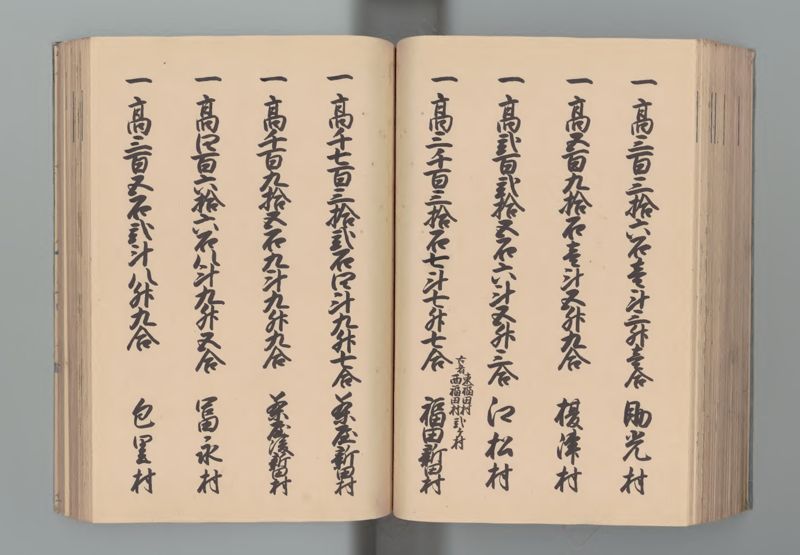 一高三百三拾六石壱斗三升壱合 助光村
一高五百九拾石壱斗五升九合 榎津村
一高弐百弐拾五石六斗五升三合 江松村
一高二千百三拾石七斗七升七合 福田新田村
古者東福田村
西福田村弐ヶ村
一高千七百三拾弐石四斗九升七合 茶屋新田村
一高千百九拾五石九斗九升九合 茶屋後新田村
一高四百六拾六石八斗九升五合 冨永村
一高三百五石弐斗八升九合 包里村